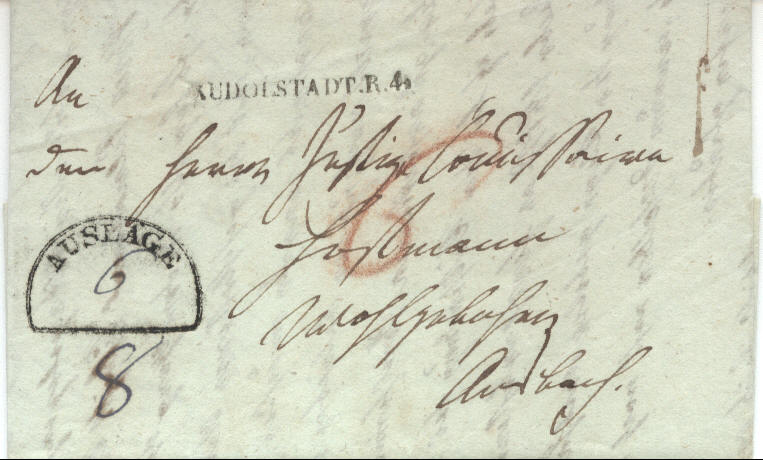 RUDOLSTADT.R.4.
An
den Herrn Justiz Commissaire
6
Hofmann
AUSLAGE
6
Wohlgeboren
8
Ansbach.